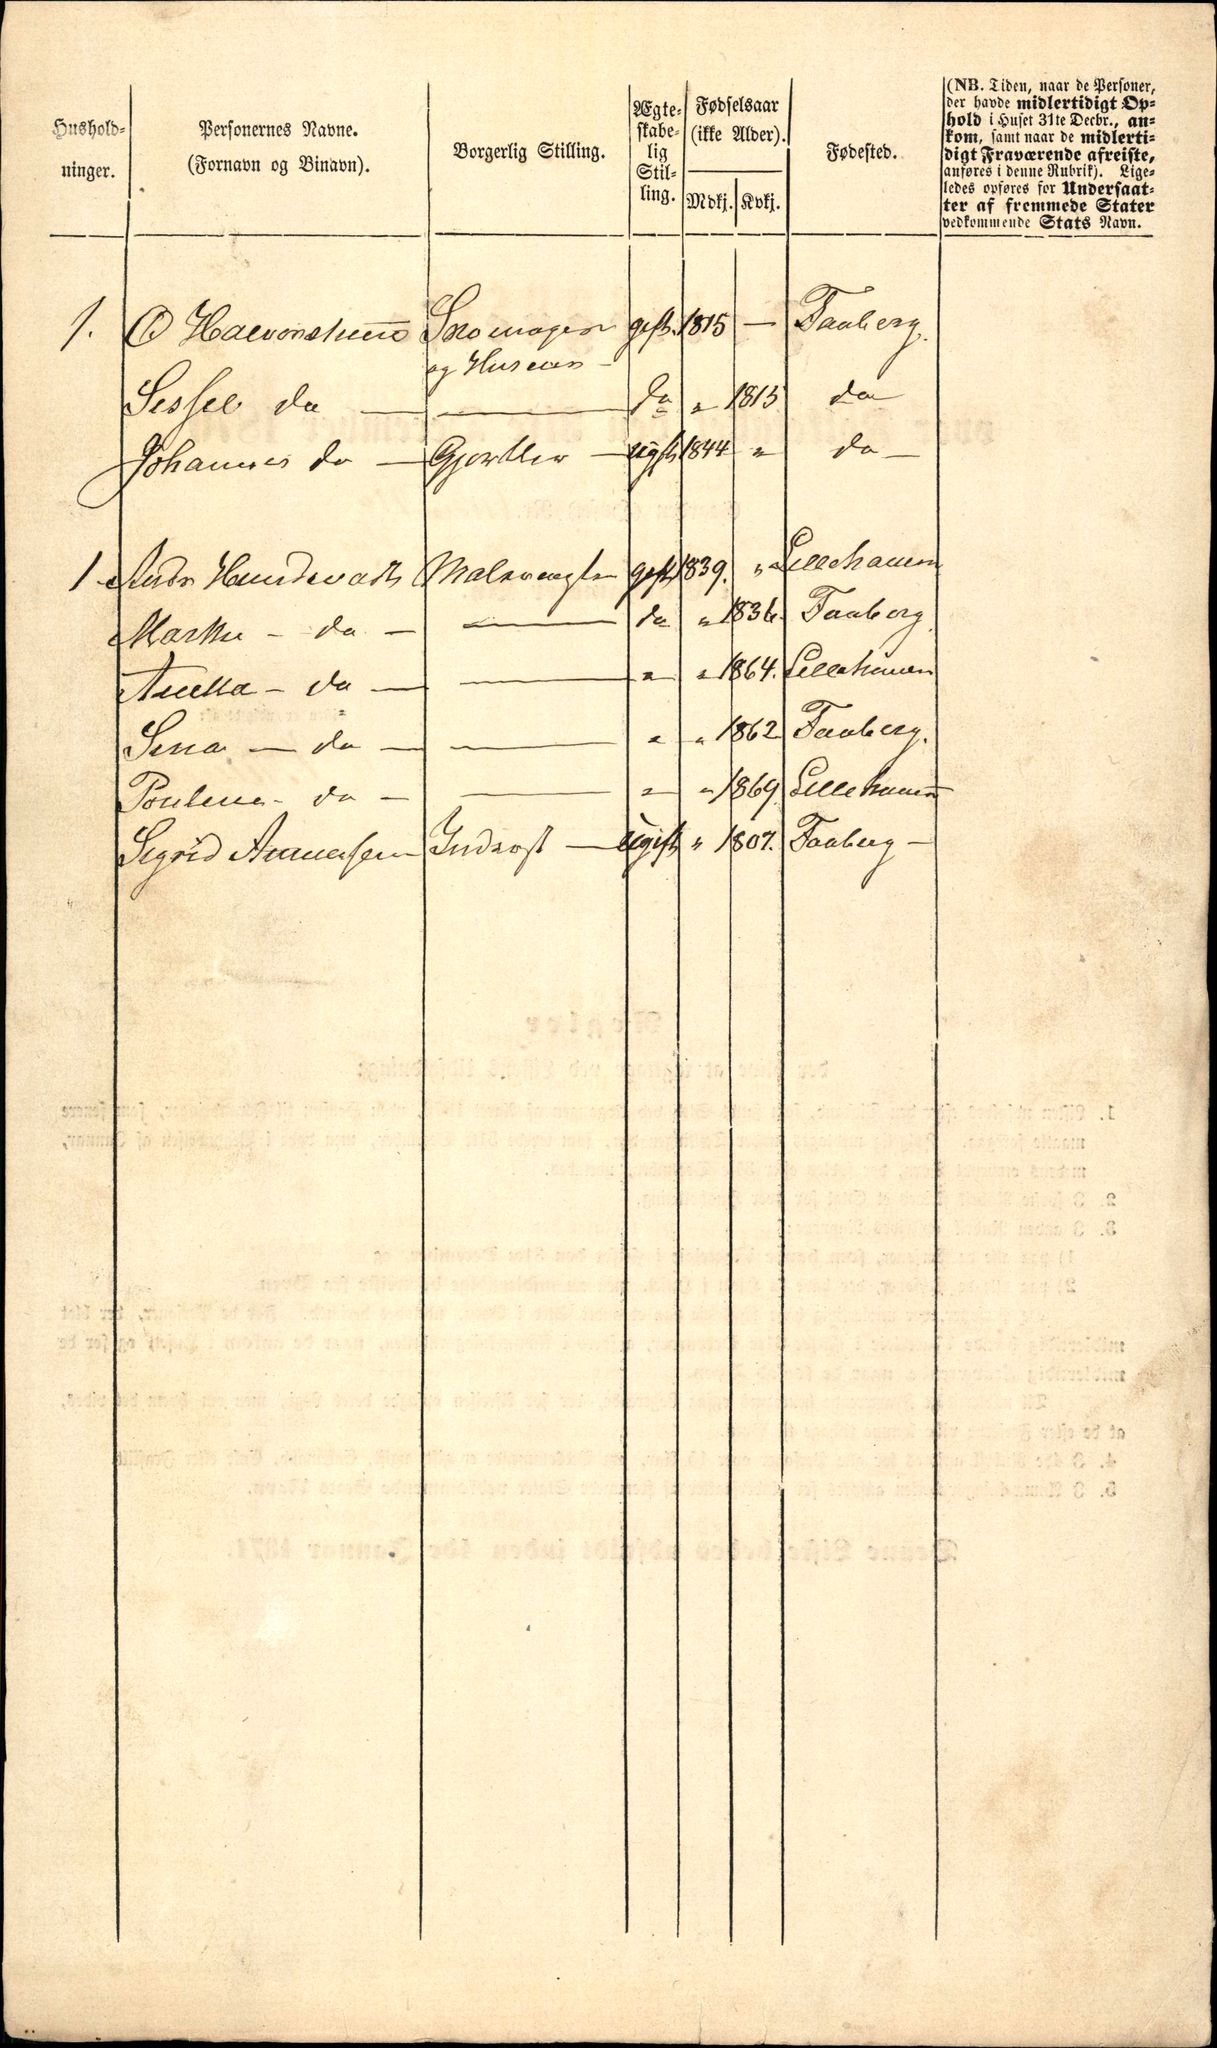 Hushold-
ninger.
Personernes Navne.
(Fornavn og Binavn).
Borgerlig Stilling.
Ægte-
skabe-
lig
Stil-
ling.
Fødselsaar
(ikke Alder).
Mdkj. Kvkj.
Fødested.
(NB. Tiden, naar de Personer,
der havde midlertidigt Op-
hold i Huset 31te Decbr., an-
kom, samt naar de midlerti-
digt Fraværende afreiste,
anføres i denne Rubrik). Lige-
ledes opføres for Undersaat-
ter af fremmede Stater
vedkommende Stats Navn.
1. O Skomager gift. 1815 — Faaberg.
og
Sessel do — — do " 1815 do
Johannes do — Gjørtler — ugift 1844 " do —
1 Andr gift 1839. " Lillehamm
Marthe — do — — do " 1836. Faaberg
do — — " " 1864. Lillehamm
Sina — do — — " " 1862 Faaberg.
do — — " " 1869 Lillehamm
Sigrid Inderst — Ugift " 1807. Faaberg —